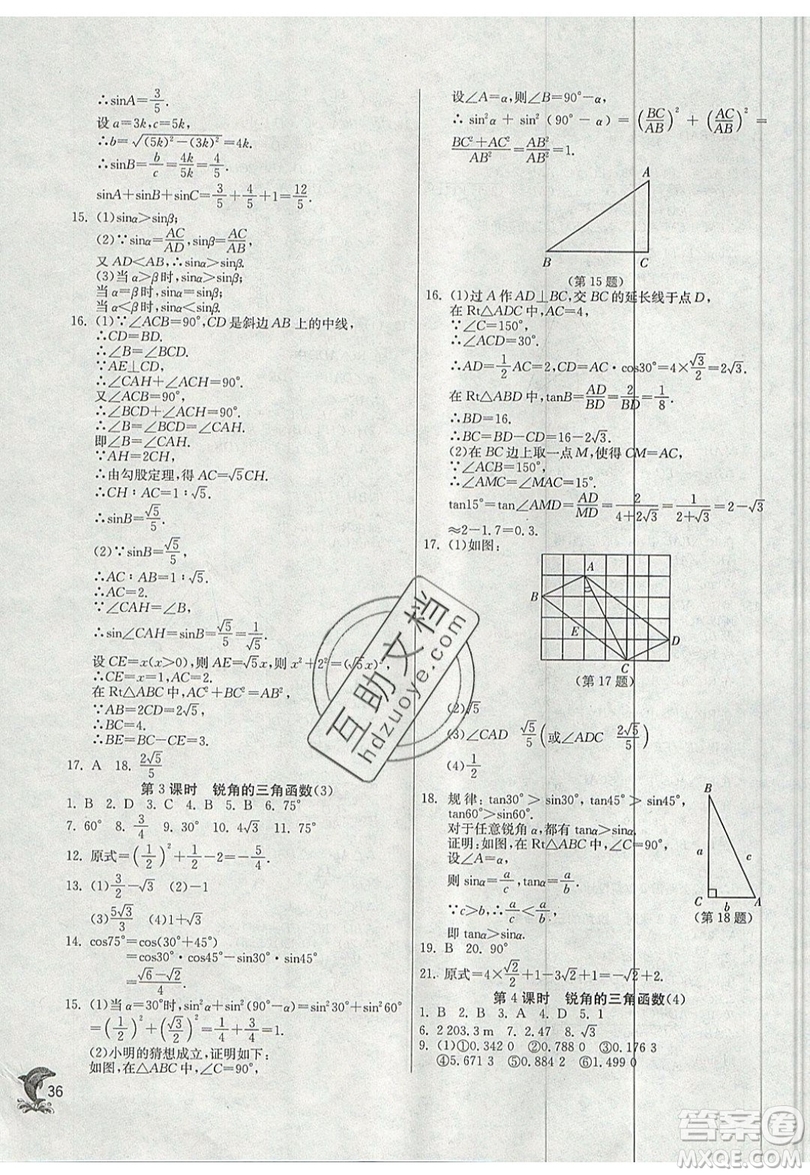 ∴sinA=3/5.
设a=3k,c=5k,
∴b=√((5k)²-(3k)²)=4k.
∴sinB=b/c=4k/5k=4/5.
sinA+sinB+sinC=3/5+4/5+1=12/5.
15. (1)sinα>sinβ;
(2)∵sinα=AC/AD,sinβ=AC/AB,
又AD<AB,∴sinα>sinβ;
(3)当α>β时,sinα>sinβ;
当α=β时,sinα=sinβ;
当α<β时,sinα<sinβ.
16. (1)∵∠ACB=90°,CD是斜边AB上的中线,
∴CD=BD.
∴∠B=∠BCD.
∵AE⊥CD,
∴∠CAH+∠ACH=90°.
又∠ACB=90°,
∴∠BCD+∠ACH=90°.
∴∠B=∠BCD=∠CAH.
即∠B=∠CAH.
∵AH=2CH,
∴由勾股定理,得AC=√5CH.
∴CH∶AC=1∶√5.
∴sinB=√5/5.
(2)∵sinB=√5/5,
∴AC∶AB=1∶√5.
∴AC=2.
∵∠CAH=∠B,
∴sin∠CAH=sinB=√5/5=1/√5.
设CE=x(x>0),则AE=√5x,则x²+2²=(√5x)²,
∴CE=x=1,AC=2.
在Rt△ABC中,AC²+BC²=AB²,
∵AB=2CD=2√5,
∴BC=4.
∴BE=BC-CE=3.
17. A 18. 2√5/5
第3课时 锐角的三角函数(3)
1. B 2. D 3. C 4. B 5. B 6. 75°
7. 60° 8. 3/4 9. 30° 10. 4√3 11. 75°
12. 原式=(1/2)²+1/2-2=-5/4.
13. (1)3/2-√3 (2)-1
(3)5√3/3 (4)√6-1
14. cos75°=cos(30°+45°)
=cos30°·cos45°-sin30°·sin45°
=(√6-√2)/4.
15. (1)当α=30°时,sin²α+sin²(90°-α)=sin²30°+sin²60°
=(1/2)²+(√3/2)²=1/4+3/4=1.
(2)小明的猜想成立,证明如下:
如图,在△ABC中,∠C=90°,
36
设∠A=α,则∠B=90°-α,
∴sin²α+sin²(90°-α)=(BC/AB)²+(AC/AB)²=
(BC²+AC²)/AB²=AB²/AB²=1.
A
B
C
(第15题)
16. (1)过A作AD⊥BC,交BC的延长线于点D,
在Rt△ADC中,AC=4,
∵∠C=150°,
∴∠ACD=30°.
∴AD=1/2AC=2,CD=AC·cos30°=4×√3/2=2√3.
在Rt△ABD中,tanB=AD/BD=2/BD=1/8.
∴BD=16.
(2)在BC边上取一点M,使得CM=AC,
∵∠ACB=150°,
∴∠AMC=∠MAC=15°.
tan15°=tan∠AMD=AD/MD=2/(4+2√3)=1/(2+√3)=2-√3
≈2-1.7=0.3.
17. (1)如图:
A
B
E
D
C
(第17题)
(2)√5
(3)∠CAD √5/5(或∠ADC 2√5/5)
(4)1/2
18. 规律:tan30°>sin30°,tan45°>sin45°,
tan60°>sin60°.
对于任意锐角α,都有tanα>sinα.
证明:如图,在△ABC中,∠C=90°,
设∠A=α,
则sinα=a/c,tanα=a/b.
∵c>b,∴a/c<a/b.
即tanα>sinα.
B
a
c
C
b
A
(第18题)
19. B 20. 90°
21. 原式=4×√2/2+1-3√2+1=-√2+2.
第4课时 锐角的三角函数(4)
1. B 2. B 3. D 4. A 5. 1
6. 2 203.3 m 7. 2.47 8. √3
9. (1)①0.342 0 ②0.884 2 ③0.176 3
④5.671 3 ⑤0.884 2 ⑥1.499 0
互助文档
hdzuoye.com
答案卷
MXQE.COM